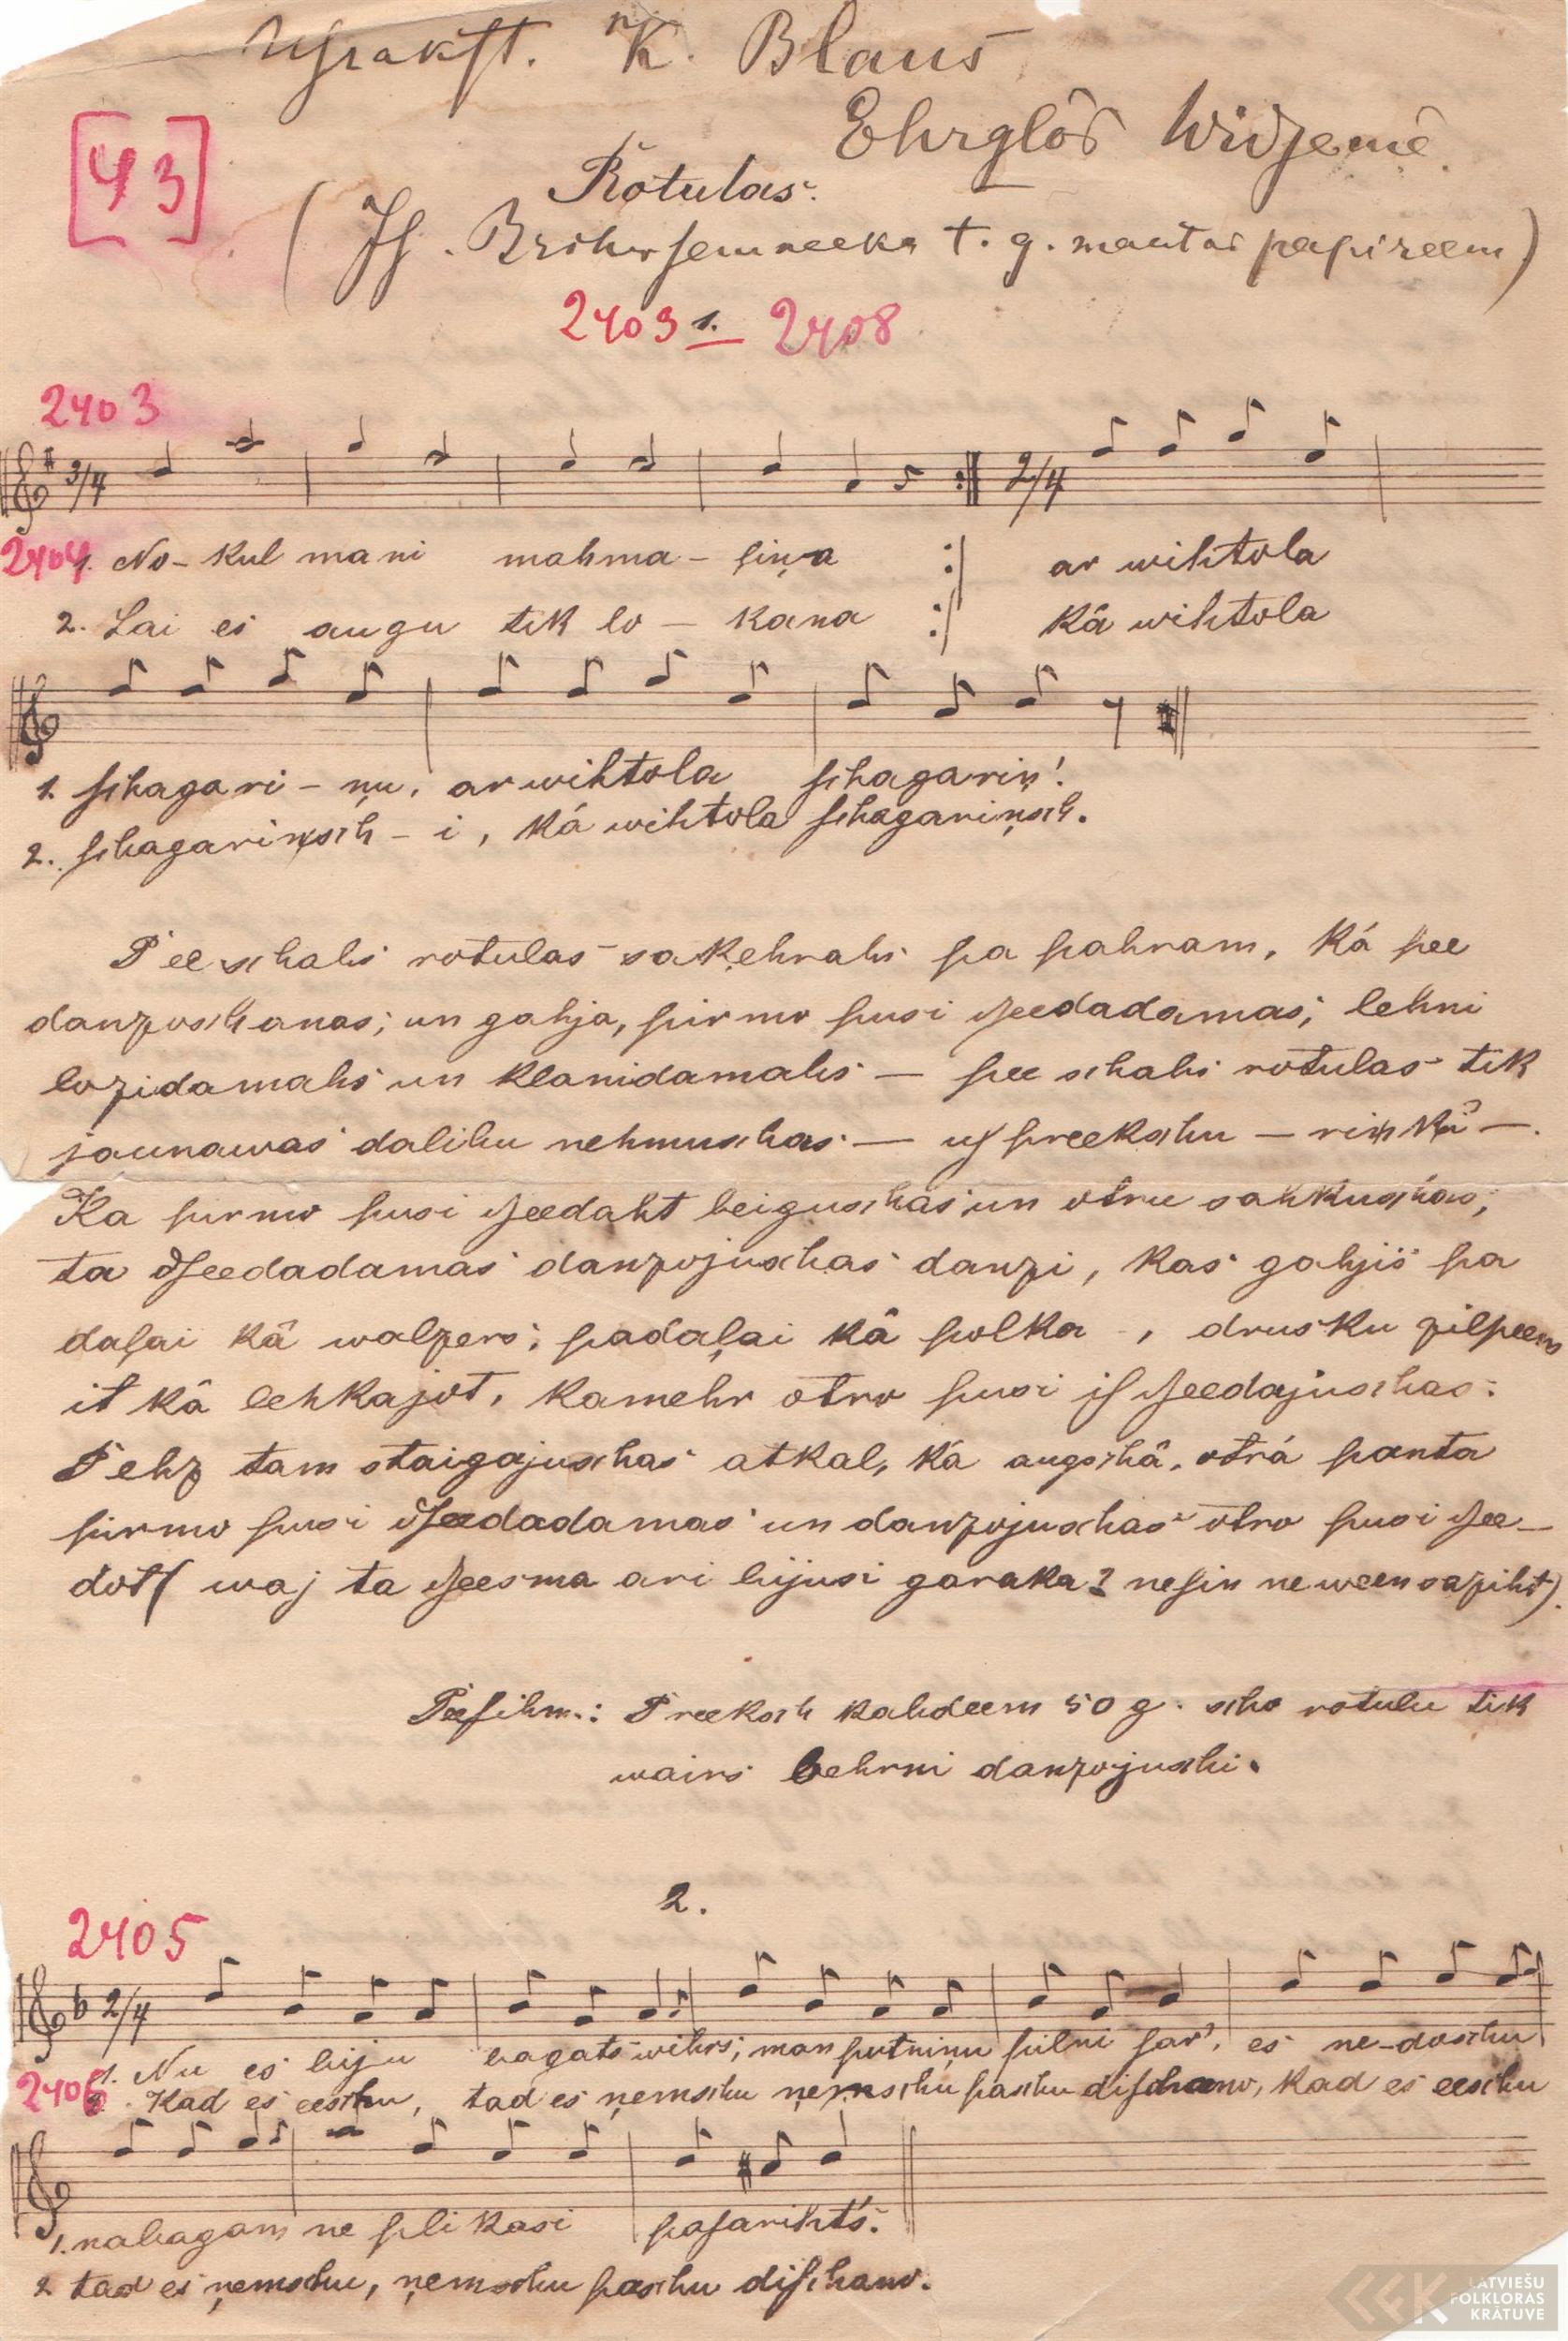 Usrakst. K. Blaus
Ehrglôs Widzemê.
[43]
Rotulas.
(Is. Brihwsemneeka t. g. mantas papireem)
2403 1. 2408
2403
3/4 2/4
2404 1. No-kul mani mahma-siņa :| ar wihtola
2. Lai es augu tik lo-kana :| kâ wihtola
1. schagari-ņu, ar wihtola schagariņ'.
2. schagariņsch-i, kâ wihtola schagariņsch.
Pee schahs rotulas sakehrahs pa pahram, kâ pee
danzoschanas; un gahja, pirmo pusi dseedadamas, lehni
lozidamahs un klanidamahs — pee schahs rotulas tik
jaunawas dalibu nehmuschas — us preekschu — riņkî —.
Ka pirmo pusi dseedaht beiguschas un otru sahkuschas,
ta dseedadamas danzojuschas danzi, kas gahjis pa
daļai kâ walzers, padaļai kâ polka, drusku zilpeem
it kâ lehkajot, kamehr otro pusi isdseedajuschas.
Pehz tam staigajuschas atkal, kâ augschâ, otrâ panta
pirmo pusi dseedadamas un danzojuschas otro pusi dsee-
dot (waj ta dseesma ari bijusi garaka? nesin neween saziht).
Peesihm.: Preeksch kahdeem 50 g. scho rotulu tik
wairs behrni danzojuschi.
2.
2405
2/4
1. Nu es biju bagats wihrs, man putniņu pilni sar', es ne-doschu
2406 2. Kad es eeschu, tad es ņemschu ņemschu paschu dischano, kad es eeschu
1. nabagam ne plikasi pasarihts.
2 tad es ņemschu, ņemschu paschu dischano.
LATVIEŠU
FOLKLORAS
KRĀTUVE